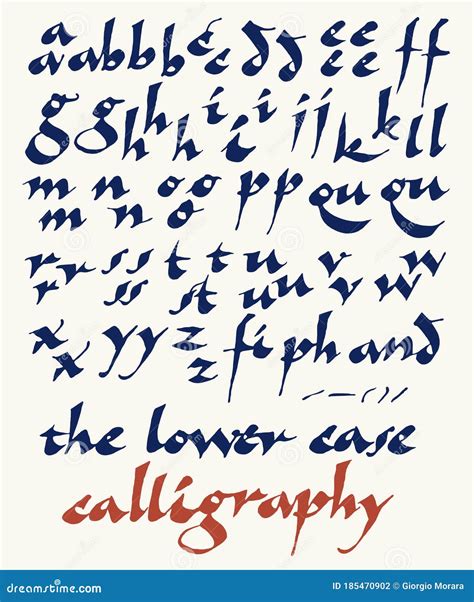 a a a b b b c c d d e e e e f f
g g h h h i i i j j k k l l
m n o o p p qu qu
m n o
r r s s t t u v w
r ss st u u v w
x x y y z z fi ph and
the lower case
calligraphy
dreamstime.com
ID 185470902 © Giorgio Morara